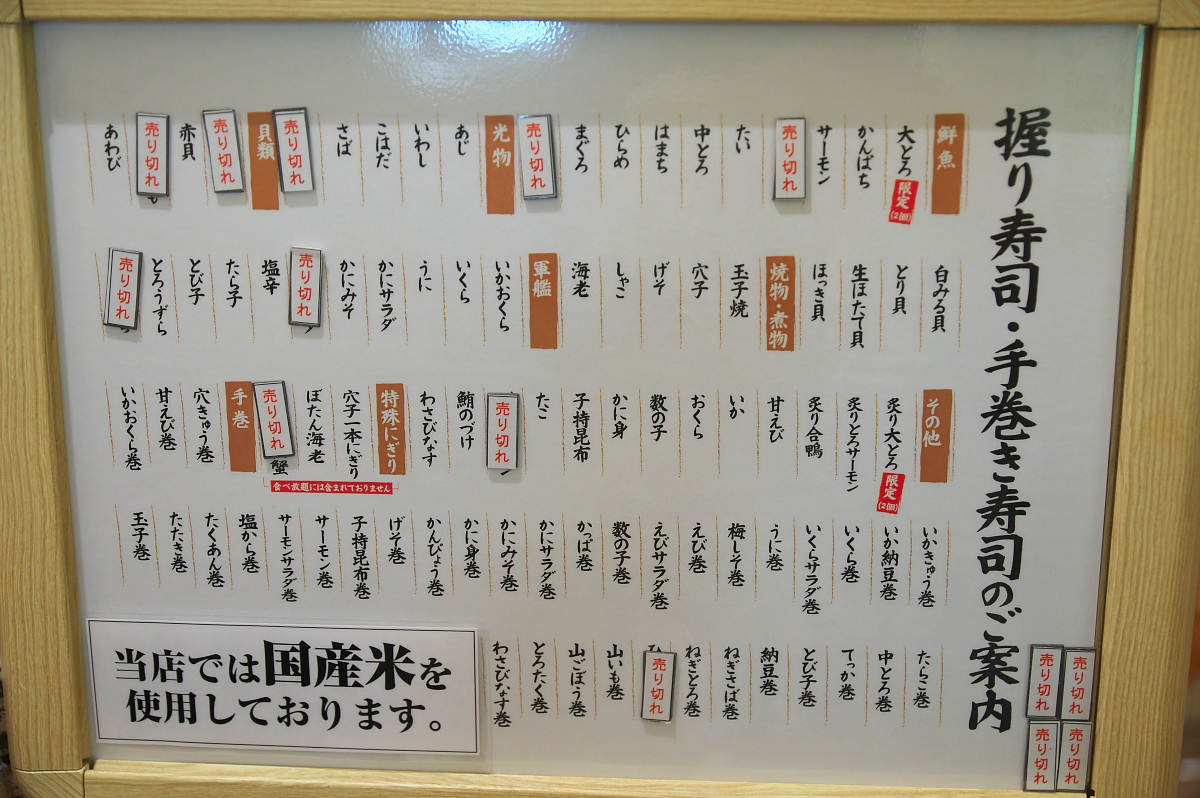 握り寿司・手巻き寿司のご案内
鮮魚
大とろ
限定
(2個)
かんぱち
サーモン
売り切れ
たい
中とろ
はまち
ひらめ
まぐろ
売り切れ
光物
あじ
いわし
こはだ
さば
売り切れ
貝類
売り切れ
赤貝
売り切れ
あわび
白みる貝
とり貝
生ほたて貝
ほっき貝
焼物・煮物
玉子焼
穴子
げそ
しゃこ
海老
軍艦
いかおくら
いくら
うに
かにサラダ
かにみそ
売り切れ
塩辛
たら子
とび子
とろうずら
売り切れ
その他
炙り大とろ
限定
(2個)
炙りとろサーモン
炙り合鴨
甘えび
いか
おくら
数の子
かに身
子持昆布
たこ
売り切れ
鮪のづけ
わさびなす
特殊にぎり
穴子一本にぎり
ぼたん海老
売り切れ
蟹
食べ放題には含まれておりません
手巻
穴きゅう巻
甘えび巻
いかおくら巻
いかきゅう巻
いか納豆巻
いくら巻
いくらサラダ巻
うに巻
梅しそ巻
えび巻
えびサラダ巻
数の子巻
かっぱ巻
かにサラダ巻
かにみそ巻
かに身巻
かんぴょう巻
げそ巻
子持昆布巻
サーモン巻
サーモンサラダ巻
塩から巻
たくあん巻
たたき巻
玉子巻
たらこ巻
中とろ巻
てっか巻
とび子巻
納豆巻
ねぎさば巻
ねぎとろ巻
売り切れ
山いも巻
山ごぼう巻
とろたく巻
わさびなす巻
当店では国産米を
使用しております。
売り切れ
売り切れ
売り切れ
売り切れ